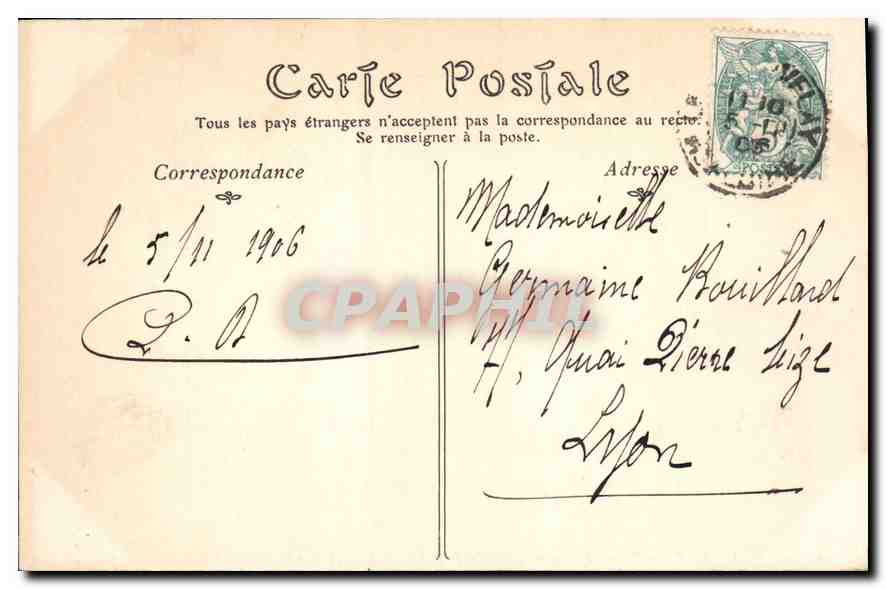 Carte Postale
Tous les pays étrangers n'acceptent pas la correspondance au recto.
Se renseigner à la poste.
Correspondance
Adresse
le 5/11 1906
Mademoiselle
Germaine Bouillard
Quai Pierre Seize
Lyon
CPAPHIL
VELAY
POSTES